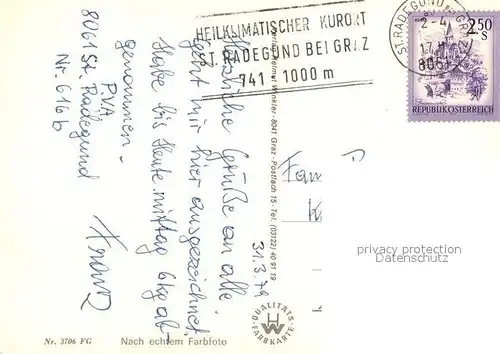 HEILKLIMATISCHER KURORT
ST. RADEGUND BEI GRAZ
741 - 1000 m
ST. RADEGUND BEI GRAZ
2.-4.
8061
2.50
S
REPUBLIK ÖSTERREICH
8061 St. Radegund
Nr. 616b
PVA
Herzliche Grüße an alle.
geht mir hier ausgezeichnet,
habe bis heute mittag 6 kg ab
genommen.
Franz
31.3.79
Verlag Helmut Winkler - 8041 Graz - Postfach 15 - Tel. (03122) 40 91 19
QUALITÄTS
FARBKARTE
Fam
privacy protection
Datenschutz
Nr. 3706 FG
Nach echtem Farbfoto